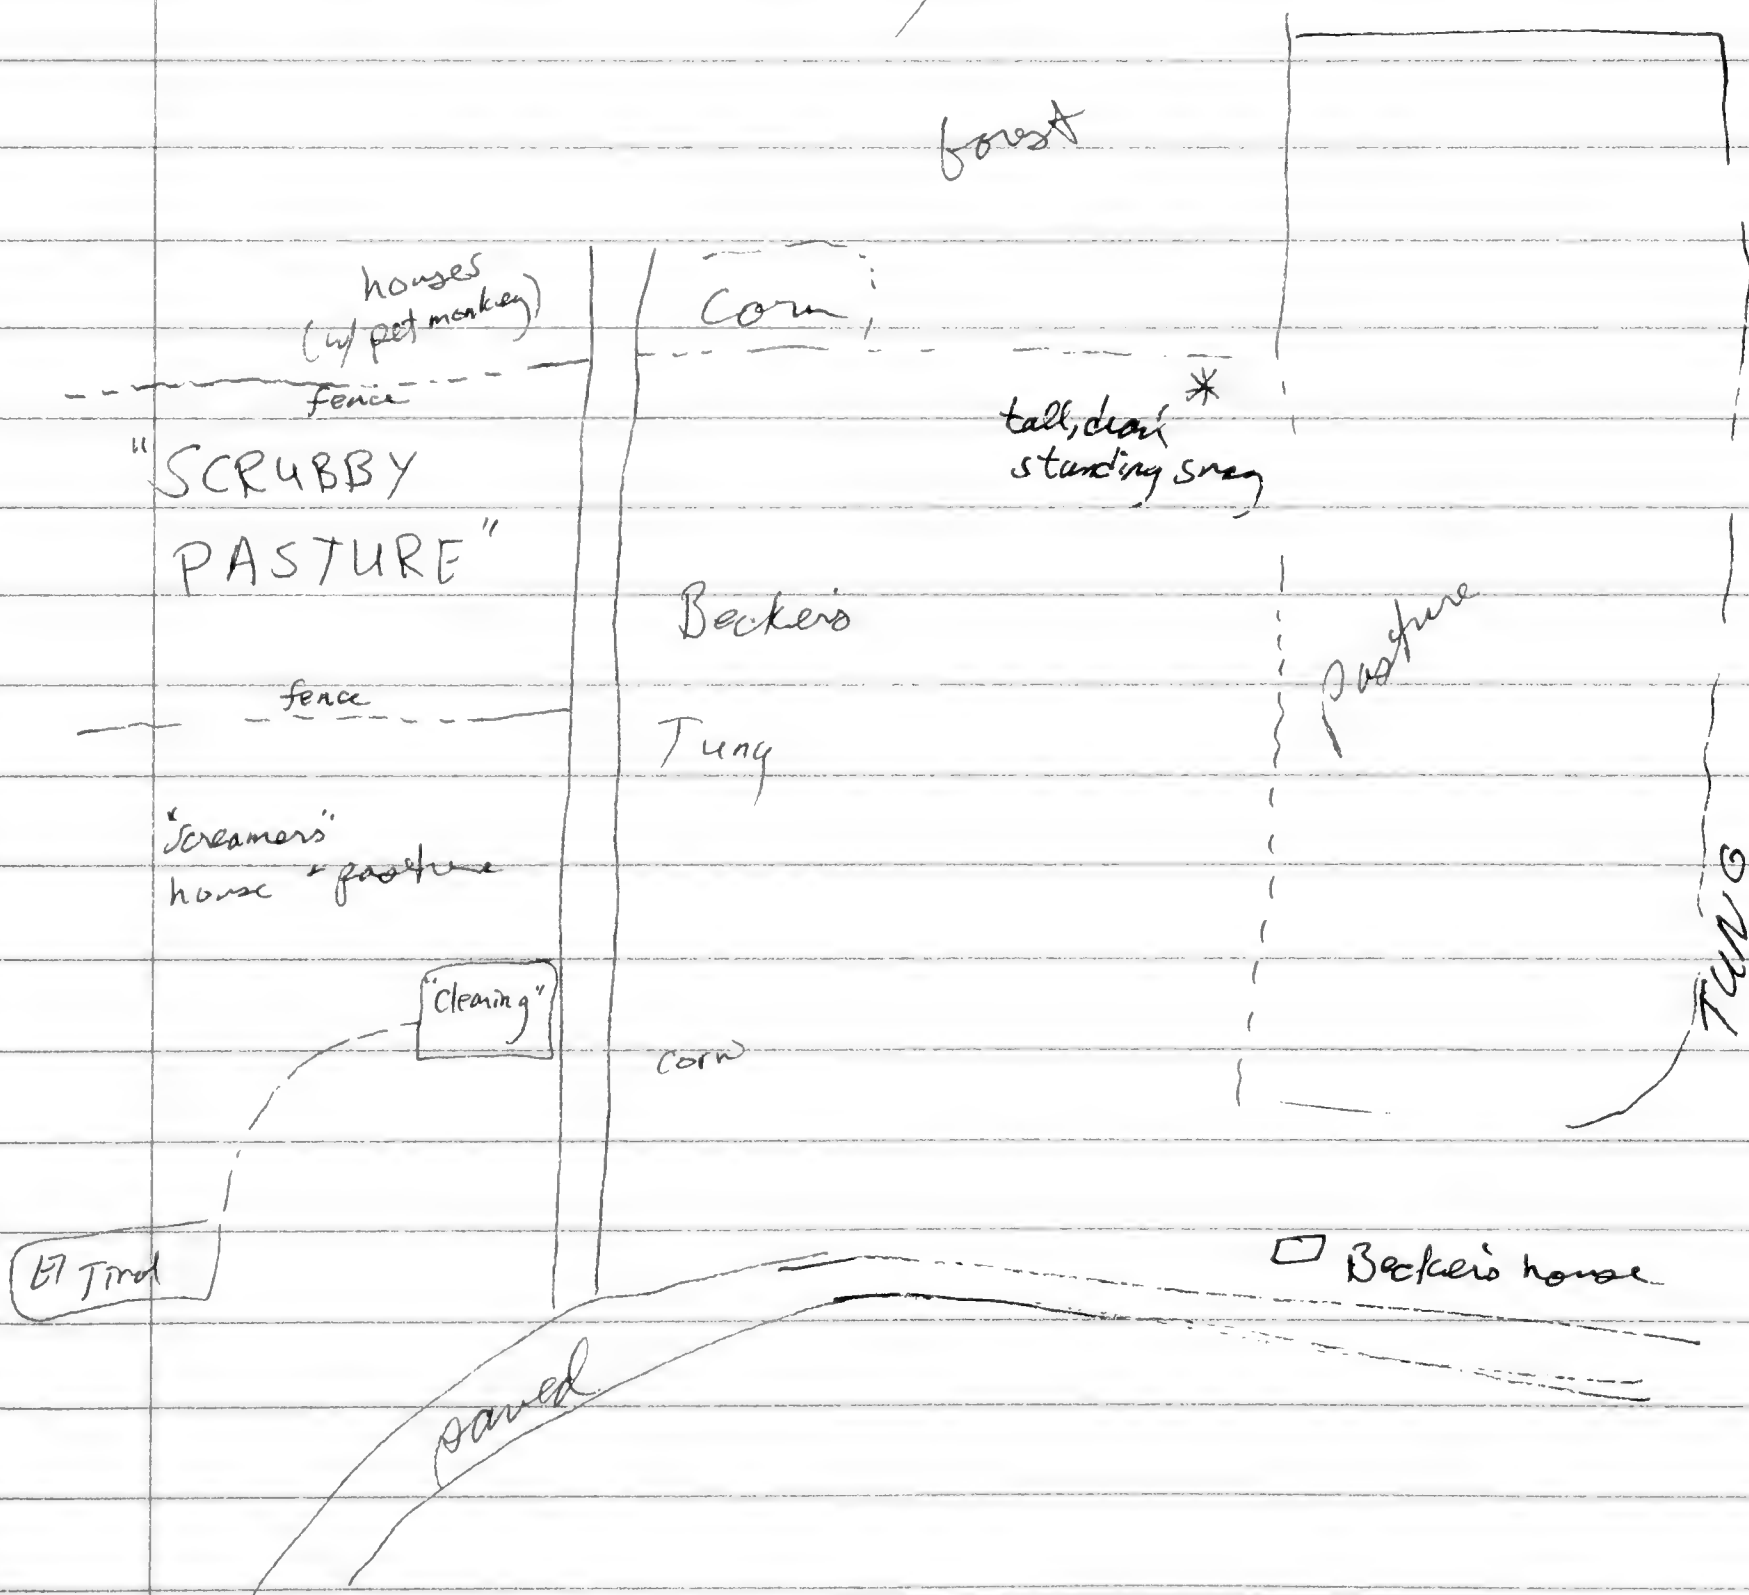 forest
houses
(w/ pet monkey)
Corn
fence
tall, dead
standing snag
"SCRUBBY
PASTURE"
Becker's
pasture
fence
Tung
"Screamers"
house + pasture
TUNG
"Clearing"
corn
El Tirol
Becker's house
paved